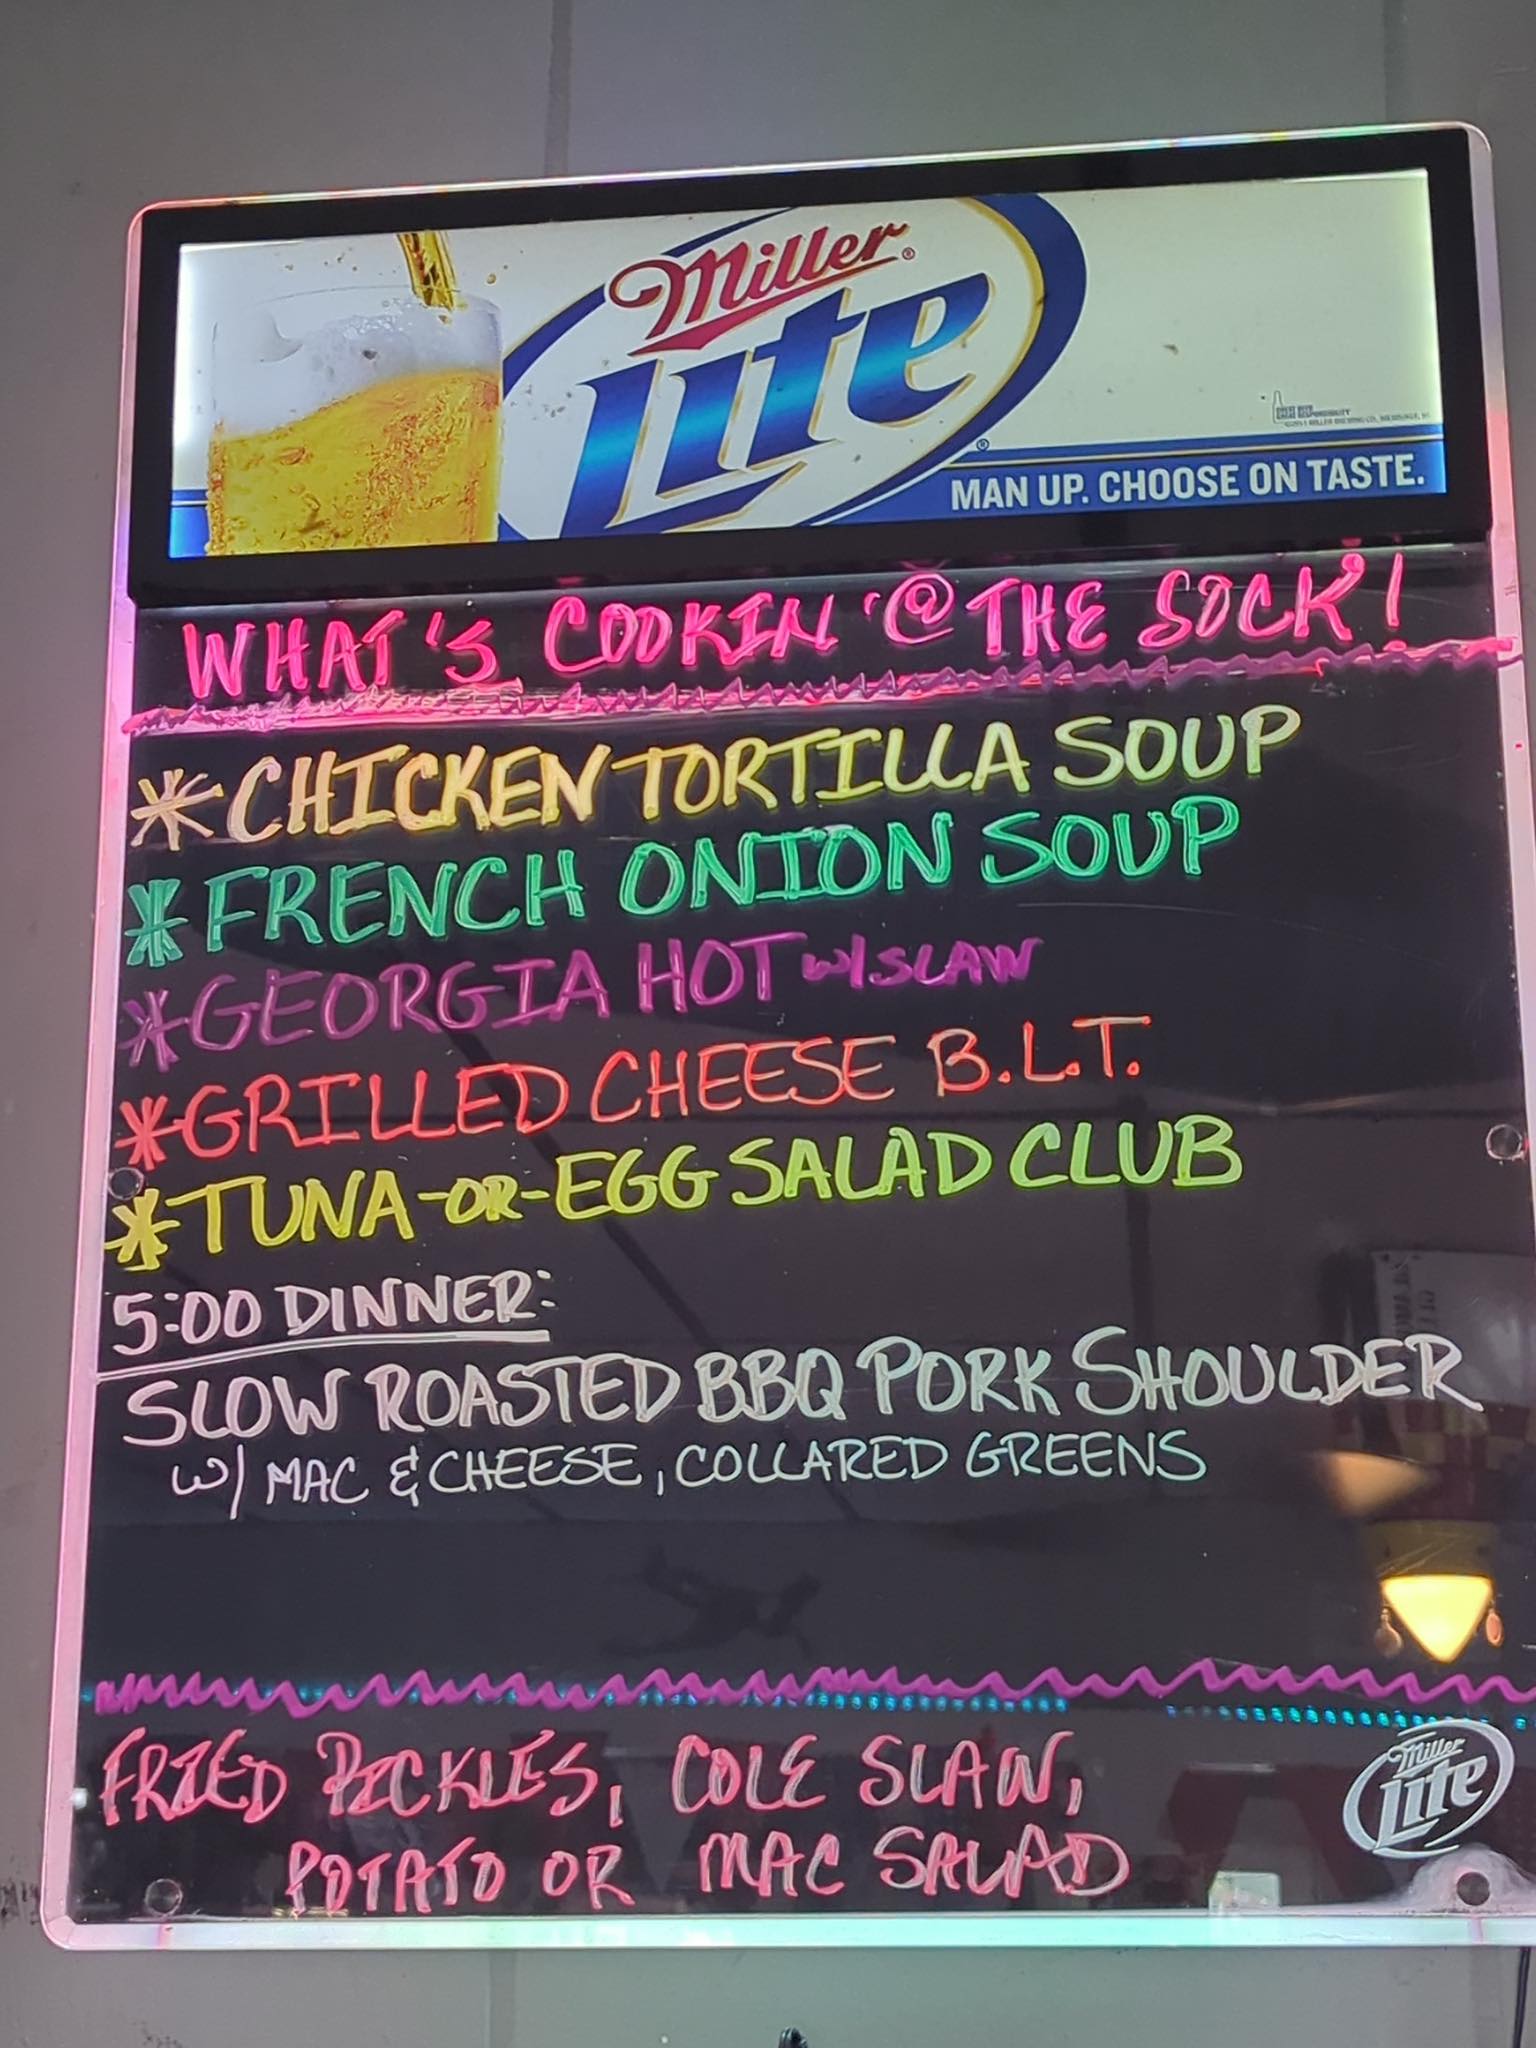 Miller
Lite
MAN UP. CHOOSE ON TASTE.
WHAT'S COOKIN'@ THE SOCK!
*CHICKEN TORTILLA SOUP
*FRENCH ONION SOUP
*GEORGIA HOT W/SLAW
*GRILLED CHEESE B.L.T.
*TUNA-OR-EGG SALAD CLUB
5:00 DINNER:
SLOW ROASTED BBQ PORK SHOULDER
W/ MAC & CHEESE, COLLARED GREENS
FRIED PICKLES, COLE SLAW,
POTATO OR MAC SALAD
Miller
Lite